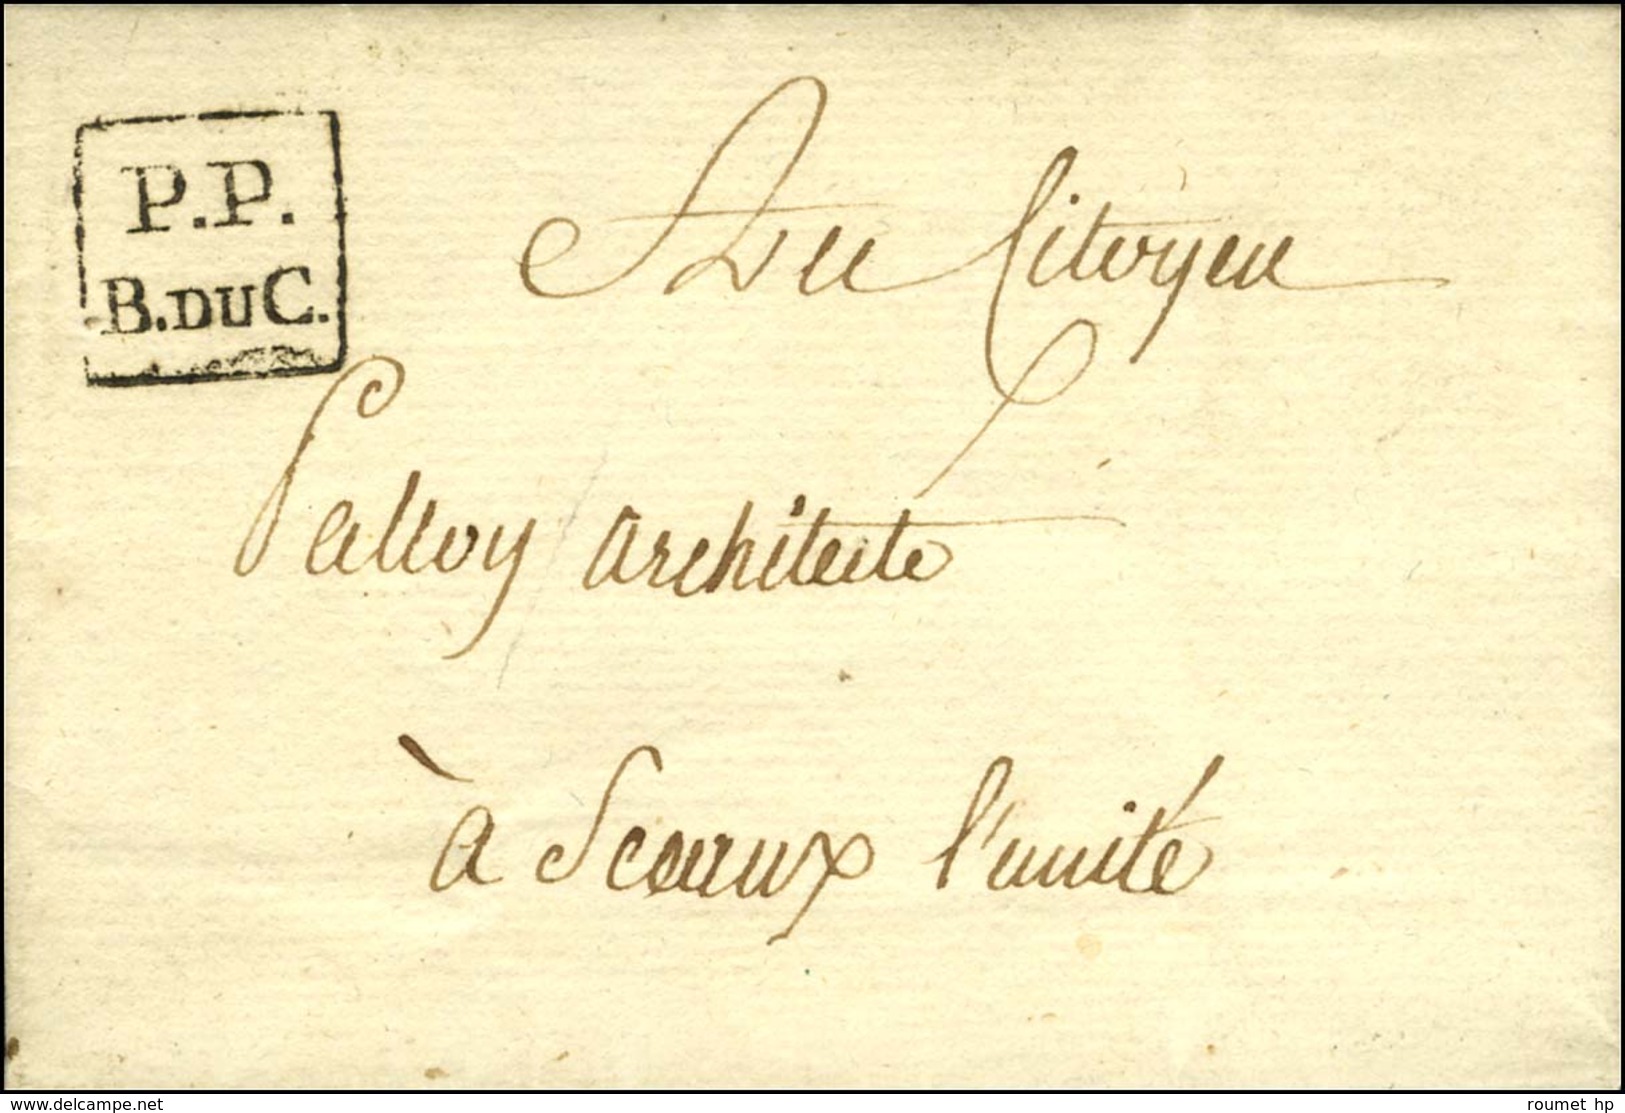 P.P.
B.DUC.
Au Citoyen
Palloy architecte
à Sceaux l'unité
www.delcampe.net
roumet hp